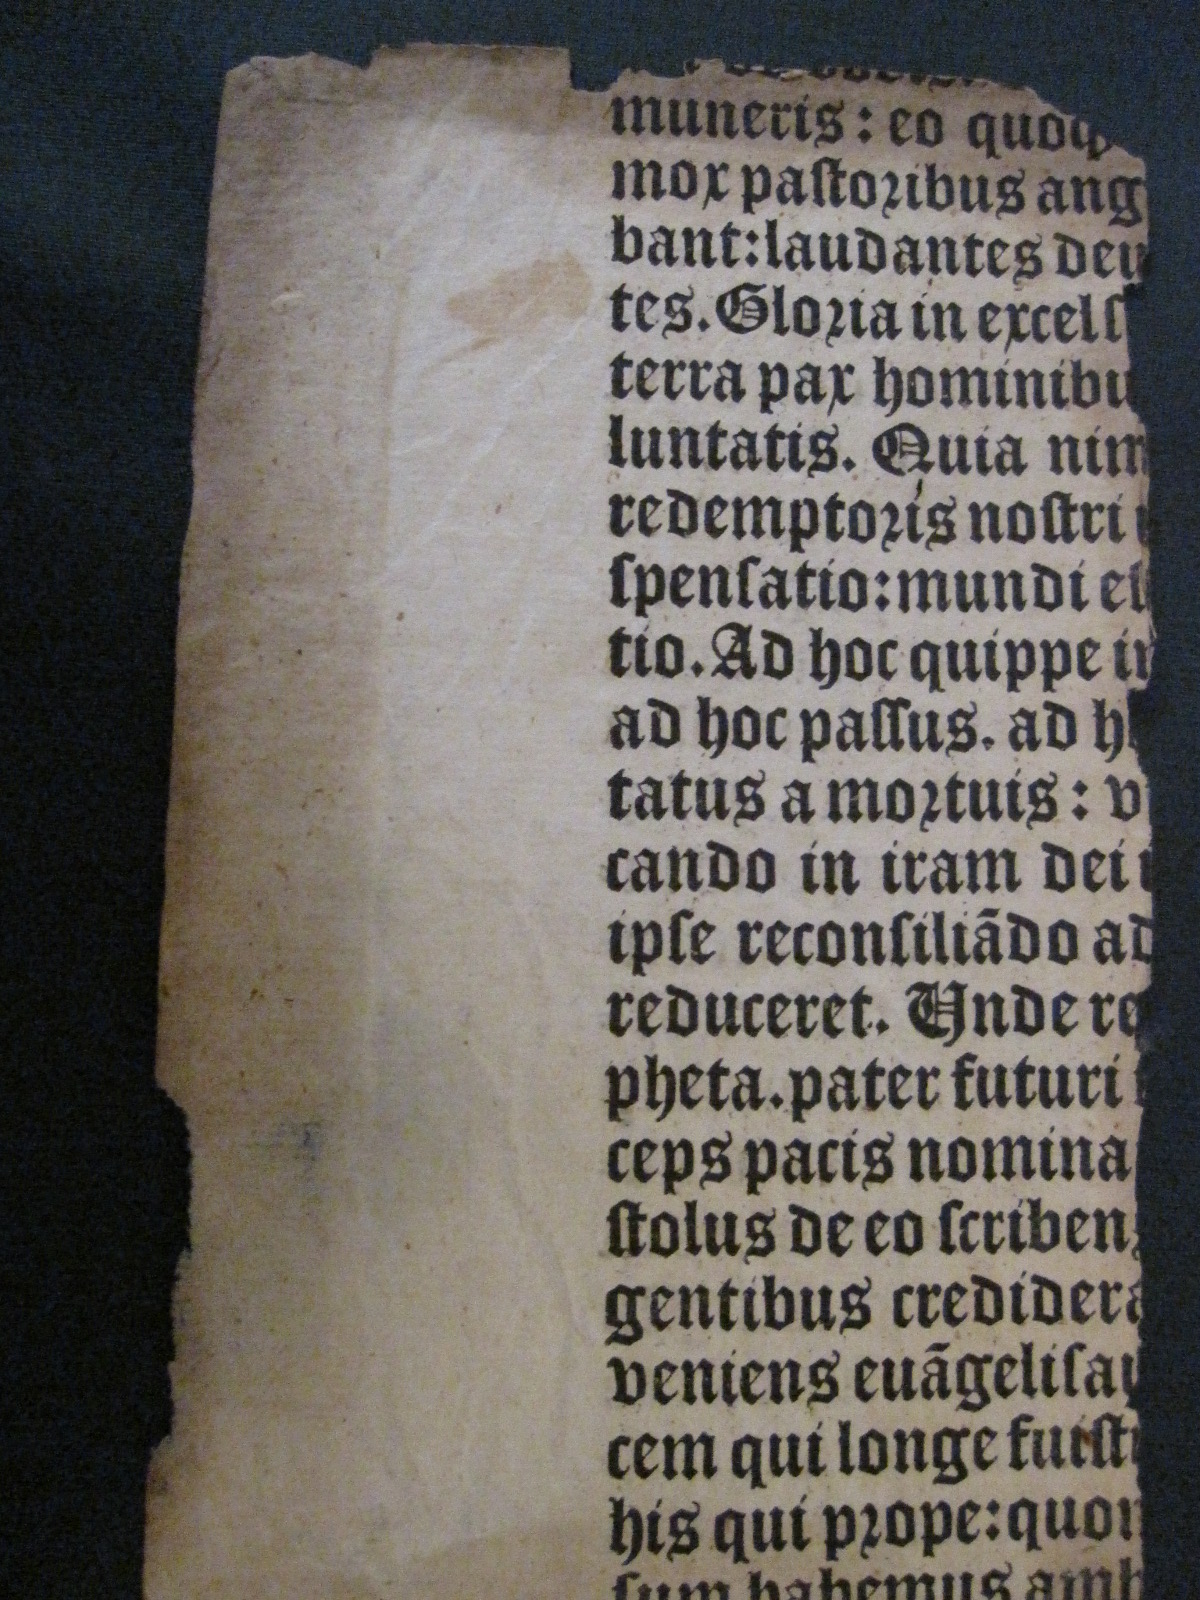 muneris : eo quoq
mox paſtoꝛibus ang
bant:laudantes deu
tes. Gloꝛia in excelſ
terra pax hominibu
luntatis. Quia nim
redemptoꝛis noſtri
ſpenſatio:mundi e
tio. Ad hoc quippe i
ad hoc paſſus. ad h
tatus a moꝛtuis : v
cando in iram dei
ipſe reconſiliādo ad
reduceret. Unde re
pheta.pater futuri
ceps pacis nomina
ſtolus de eo ſcriben
gentibus credidera
veniens euāgeliſa
cem qui longe fuiſt
his qui pꝛope:quon
ſum habemus amb